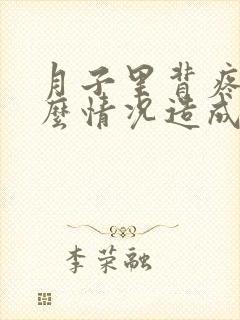 月子里背疼
麼情况造成
李荣融